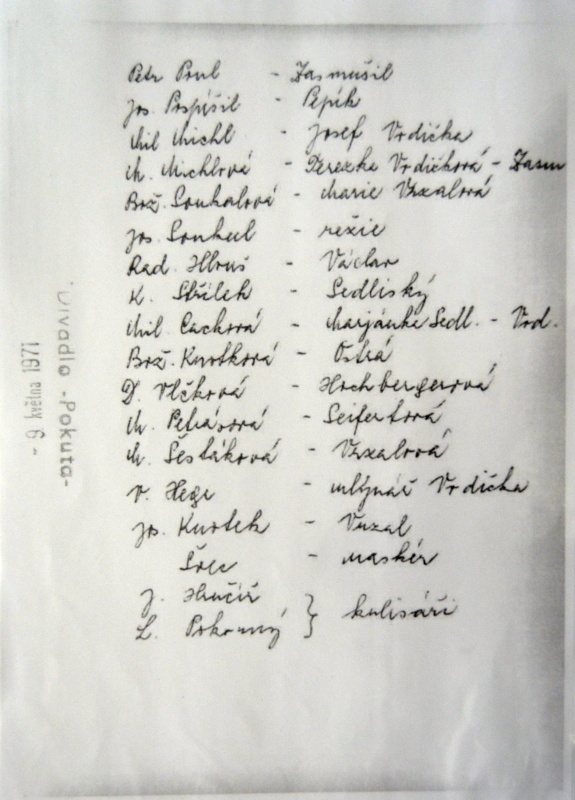 Petr Prul - Zasmušil
Jos. Pospíšil - Pepík
Mil Michl - Josef Vrdička
M. Michlová - Terezka Vrdičková - Zasm
Bož. Soukalová - Marie Vrzalová
Jos. Soukal - režie
Rad. Hlouš - Václav
K. Střílek - Sedliský
Mil. Cachová - Marjánka Sedl. - Vrd.
Bož. Kurtková - Ostrá
D. Vlčková - Hochbergerová
M. Petrásová - Seifertová
M. Šestáková - Vrzalová
V. Hegr - mlynář Vrdička
Jos. Kurtek - Vrzal
Švec - maskér
J. Hručíř } kulisáři
L. Pokorný
Divadlo -Pokuta-
- 9 května 1971